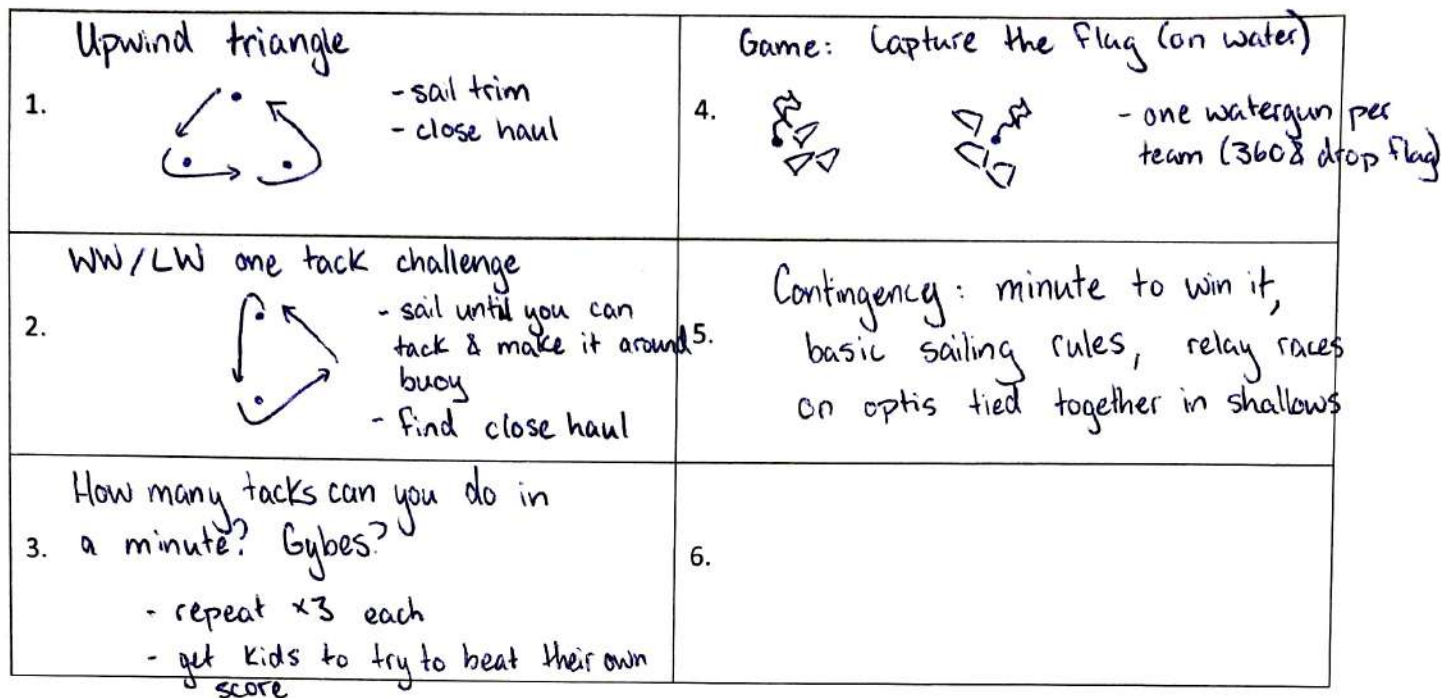 Upwind triangle
1.
- sail trim
- close haul
WW/LW one tack challenge
2.
- sail until you can
tack & make it around
buoy
- find close haul
How many tacks can you do in
3. a minute? Gybes?
- repeat x3 each
- get kids to try to beat their own
score
Game: Capture the flag (on water)
4.
- one watergun per
team (360 & drop flag)
5.
Contingency: minute to win it,
basic sailing rules, relay races
on optis tied together in shallows
6.